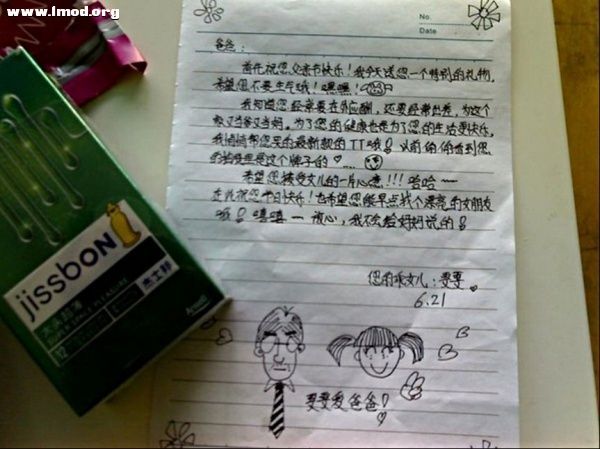 www.1mod.org
No.
Date
爸爸:
首先祝您父亲节快乐!我今天送您一个特别的礼物,
希望您不要生气哦!嘿嘿!
我知道您经常要在外应酬,还要经常出差,为这个
家又当爹又当妈。为了您的健康也是为了您的生活更快乐,
我悄悄帮您买的最新款的TT哦!以前偷看到您
的抽屉里是这个牌子的....
希望您接受女儿的一片心意!!!哈哈~~
在此祝您节日快乐!也希望您能早点找个漂亮的女朋友
哦!嘻嘻—放心,我不会给妈妈说的!
您的乖女儿:
6.21
爱爸爸!
jissbon
杰士邦
SUPER SPACE PLEASURE
Ansell
12